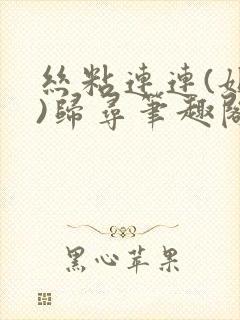 絲粘連連(
)歸尋筆趣閣
黑心苹果